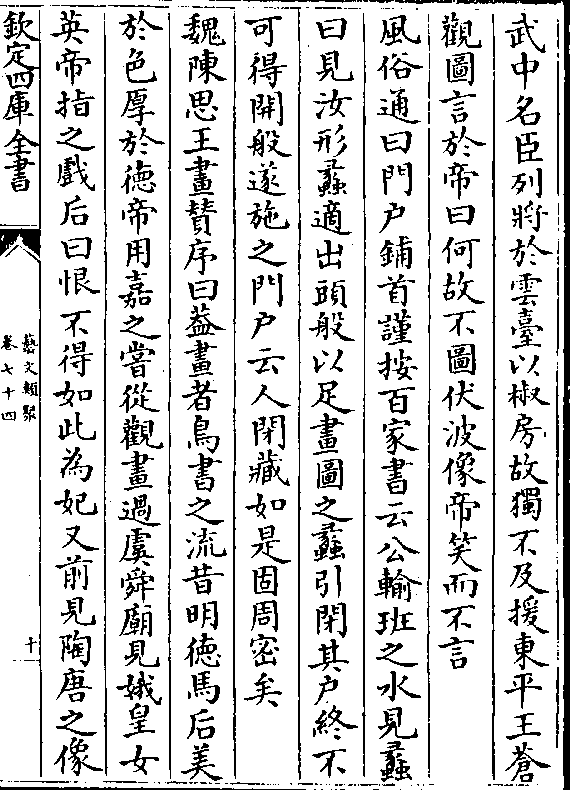 武中名臣列將於雲臺以椒房故獨不及援東平王蒼
觀圖言於帝曰何故不圖伏波像帝笑而不言
風俗通曰門户鋪首謹按百家書云公輸班之水見蠡
曰見汝形蠡適出頭般以足畫圖之蠡引閉其户終不
可得開般遂施之門户云人閉藏如是固周密矣
魏陳思王畫賛序曰葢畫者鳥書之流昔明徳馬后美
於色厚於徳帝用嘉之嘗從觀畫過虞舜廟見娥皇女
英帝指之戲后曰恨不得如此為妃又前見陶唐之像
欽定四庫全書
藝文類聚
卷七十四
十